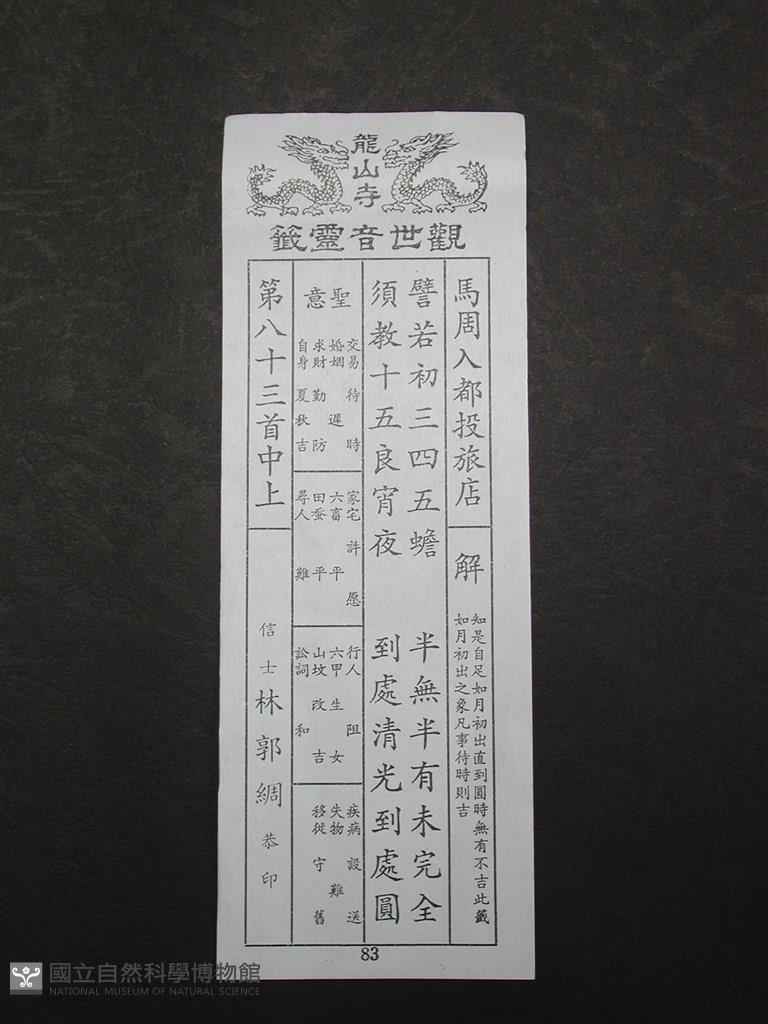 龍山寺
觀世音靈籤
馬周入都投旅店
解
知是自足如月初出直到圓時無有不吉此籤
如月初出之象凡事待時則吉
譬若初三四五蟾 半無半有未完全
須教十五良宵夜 到處清光到處圓
聖意
交易 待時
婚姻 遲
求財 勤防
自身 夏秋吉
家宅 許愿
六畜 平
田蚕 平
尋人 難
行人 阻
六甲 生女
山坟 改吉
訟詞 和
疾病 設送
失物 難
移徙 守舊
第八十三首中上
信士 林郭綢 恭印
83
國立自然科學博物館
NATIONAL MUSEUM OF NATURAL SCIENCE